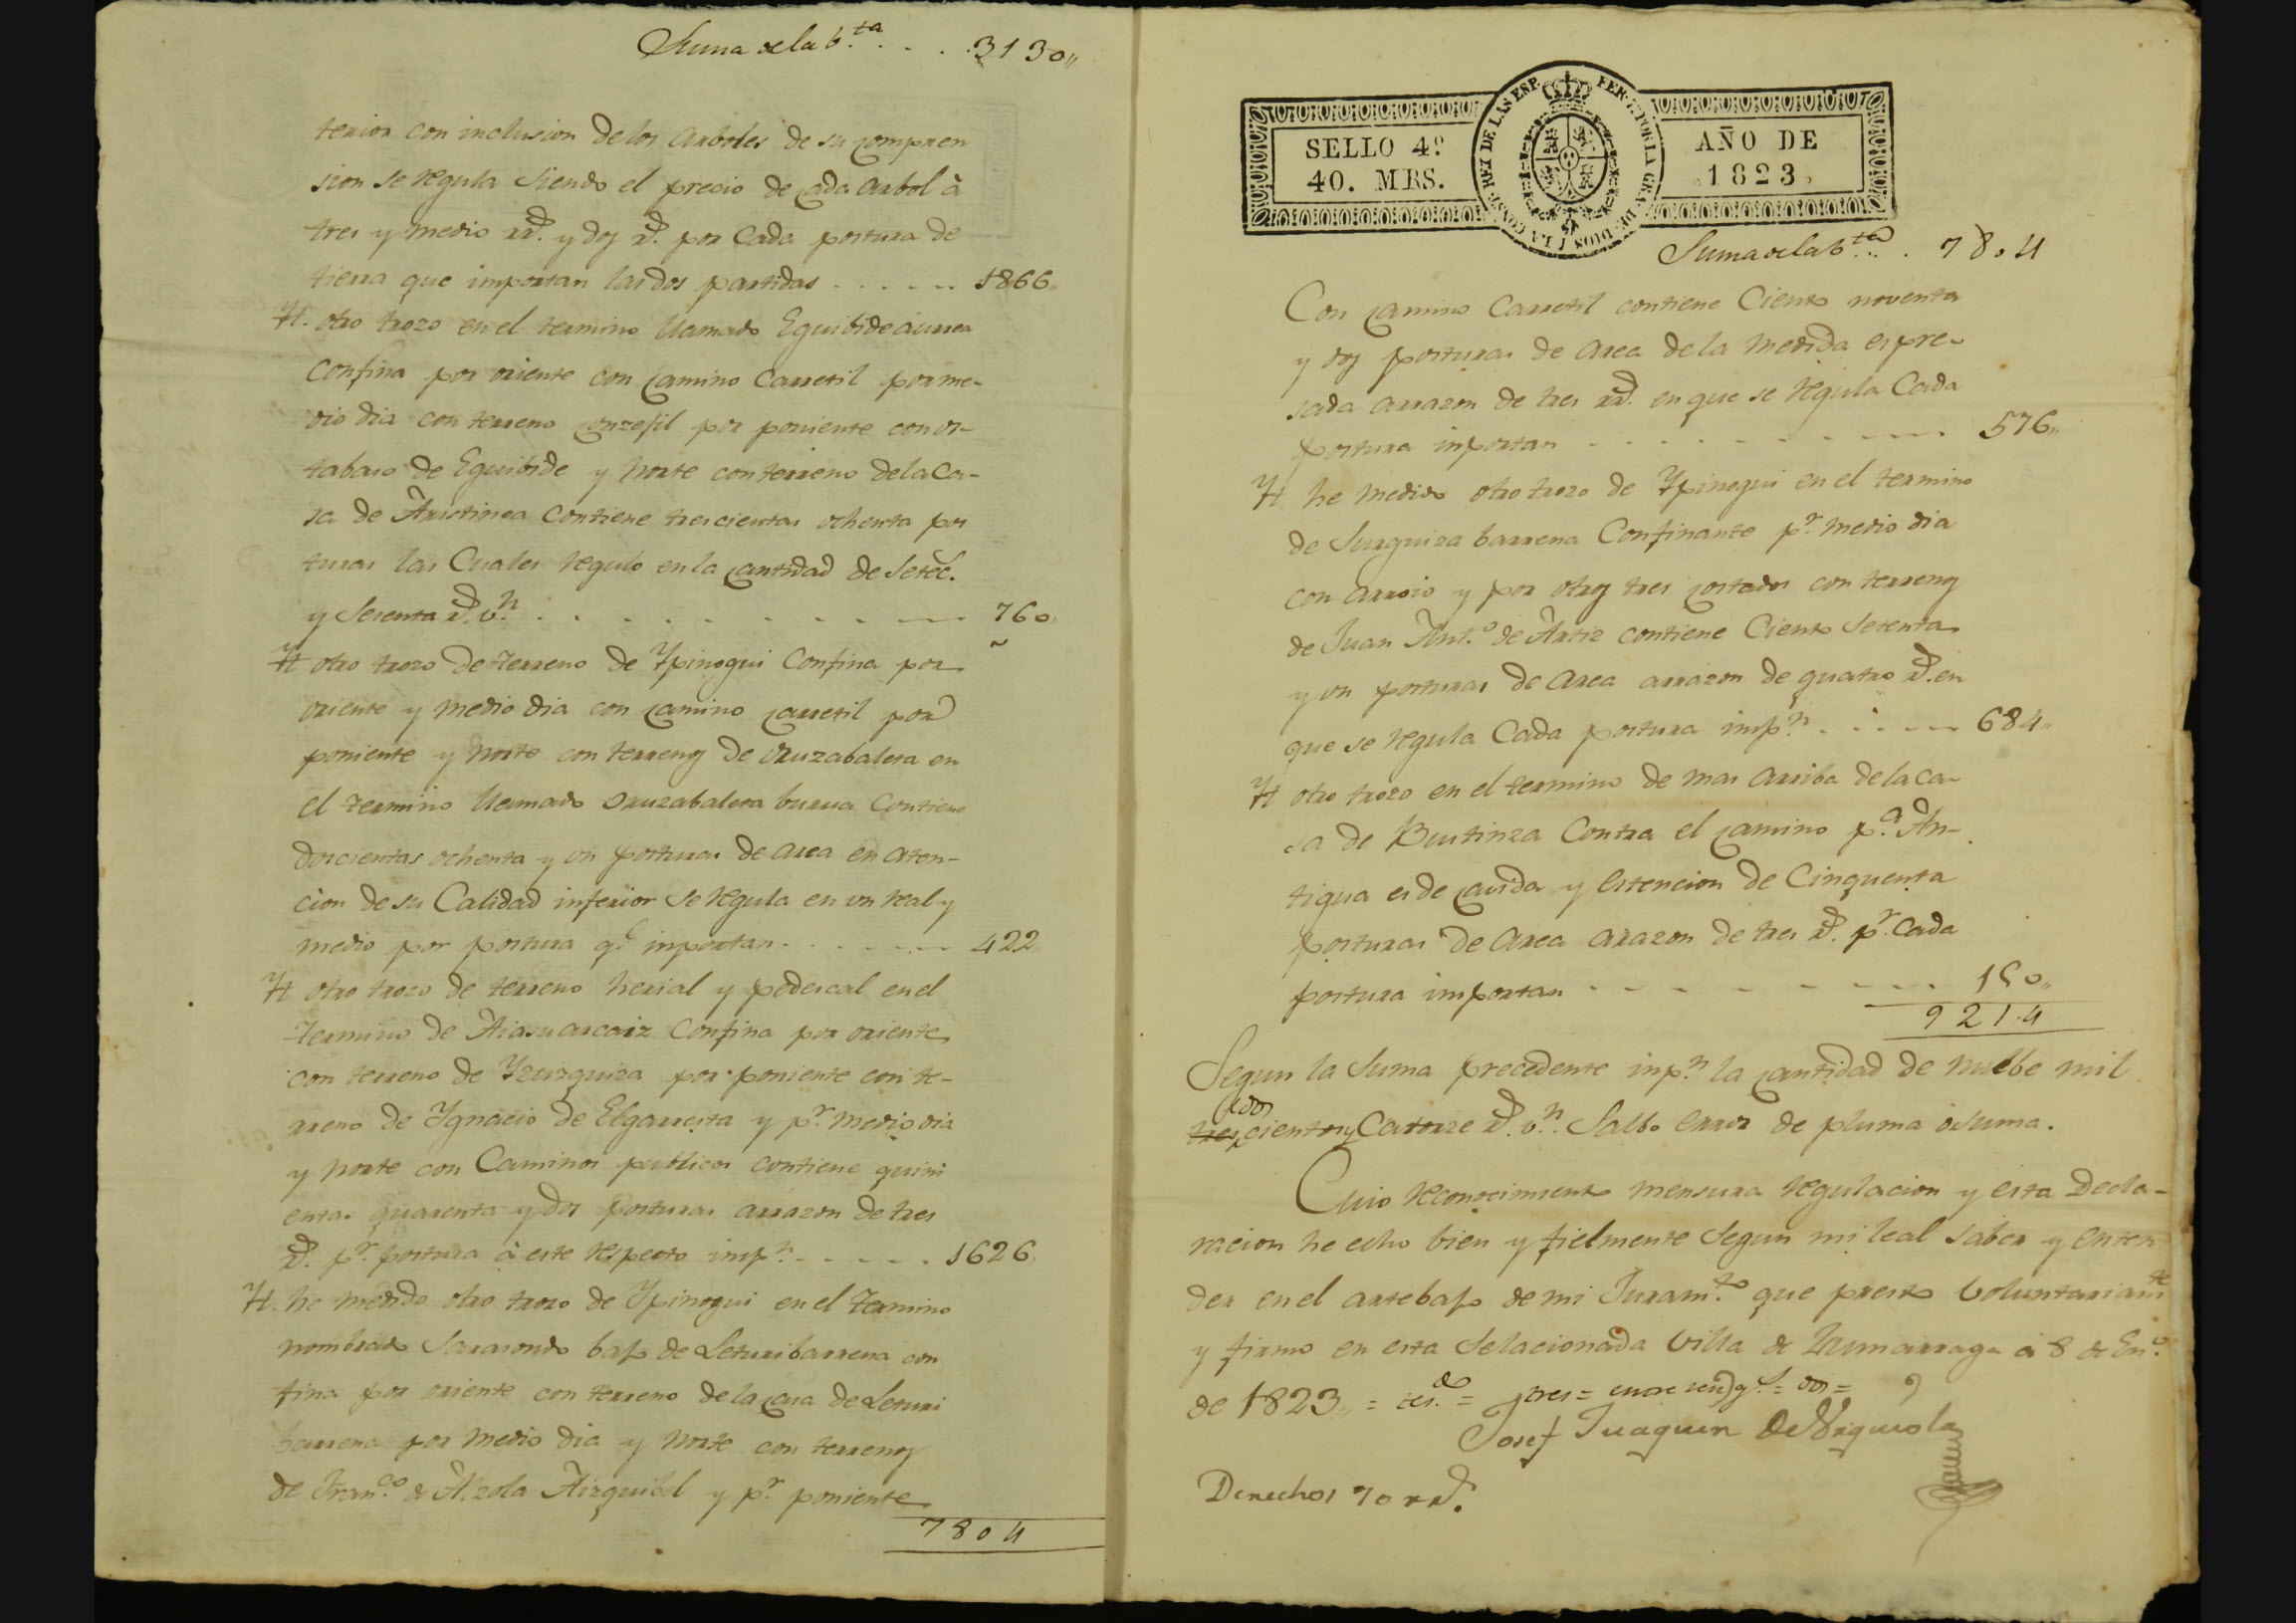 Suma de la b.ta . . . 3130,,
terior con inclusion de los arboles de su compren
sion se regula siendo el precio de cada arbol à
tres y medio rs. y dos rs. por cada postura de
tierra que importan las dos partidas . . . . . . 1866,,
Yt. otro trozo en el termino llamado Eguibideaurrea
confina por oriente con camino carretil por me-
dio dia con terreno conzejil por poniente con or-
tabaso de Eguibide y norte con terreno de la ca-
sa de Àristinea contiene trescientas ochenta pos
turas las cuales regulo en la cantidad de setec.s
y sesenta rs. v.n . . . . . . . . . 760,,
Yt otro trozo de terreno de Ypinogui confina por
oriente y medio dia con camino carretil por
poniente y norte con terrenos de Oruzabalera en
el termino llamado Oruzabalera burua contiene
doscientas ochenta y un posturas de area en aten-
cion de su calidad inferior se regula en un real y
medio por postura q.e inportan . . . . . . 422
Yt otro trozo de terreno herial y pedescal en el
termino de Àiasuarcaiz confina por oriente
con terreno de Yzuzquiza por poniente con te-
rreno de Ygnacio de Elgarresta y p.r medio dia
y norte con caminos publicos contiene quini
entas quarenta y dos posturas arrazon de tres
rs. p.r postura à este respecto imp.n . . . . . 1626,,
Yt. he medido otro trozo de Ypinogui en el termino
nombrado Sarasondo bajo de Leturibarrena con
fina por oriente con terreno de la casa de Leturi
barrena por medio dia y norte con terrenos
de Fran.co de Àlzola Àizquibel y p.r poniente
7804
SELLO 4º
40. MRS.
FER. 7º POR LA GRA. DE DIOS I LA CONST. REI DE LAS ESP.
AÑO DE
1823.
Suma de la b.ta . . 7804
Con camino carretil contiene ciento noventa
y dos posturas de area de la medida espre-
sada arrazon de tres rs. en que se regula cada
postura inportan . . . . . . . . . 576,,
Yt he medido otro trozo de Ypinogui en el termino
de Surguiza barrena confinante p.r medio dia
con arroio y por otros tres costados con terrenos
de Juan Ànt.o de Àrtiz contiene ciento setenta
y un posturas de area arrazon de quatro rs. en
que se regula cada postura imp.n . . . . . 684,,
Yt otro trozo en el termino de mas arriba de la ca-
sa de Bustinza contra el camino p.a Àn-
tigua es de cavida y estencion de cinquenta
posturas de area arazon de tres rs. p.r cada
postura importan . . . . . . . . 150,,
9214
Segun la suma precedente inp.n la cantidad de nuebe mil
dos
trescientos y catorze rs. v.n. Salbo error de pluma ò suma.
Cuio reconocimiento mensura regulacion y esta decla-
racion he echo bien y fielmente segun mi leal saber y enten
der en el arte bajo de mi juram.to que presto voluntariam.te
y firmo en esta relacionada villa de Zumarraga à 8 de En.o
de 1823,, = tes.do = tres = entre reng.s = dos =
Josef Juaquin De
Derechos 70 rrs.